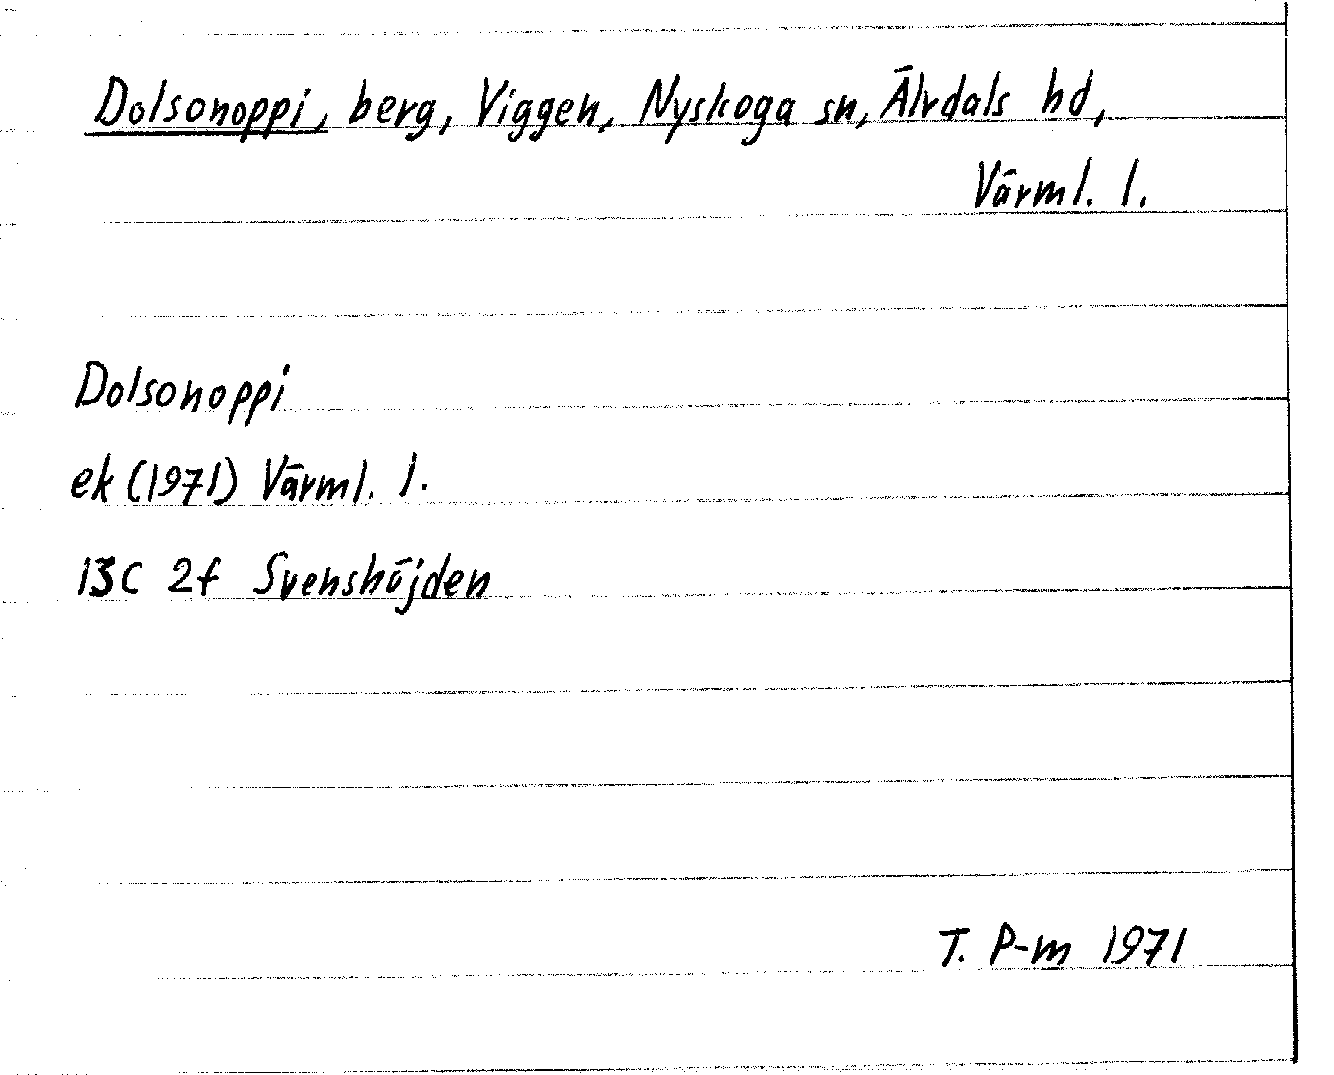 Dolsonoppi, berg, Viggen, Nyskoga sn, Älvdals hd,
Värml. l.
Dolsonoppi
ek (1971) Värml. l.
13C 2f Svenshöjden
T. P-m 1971